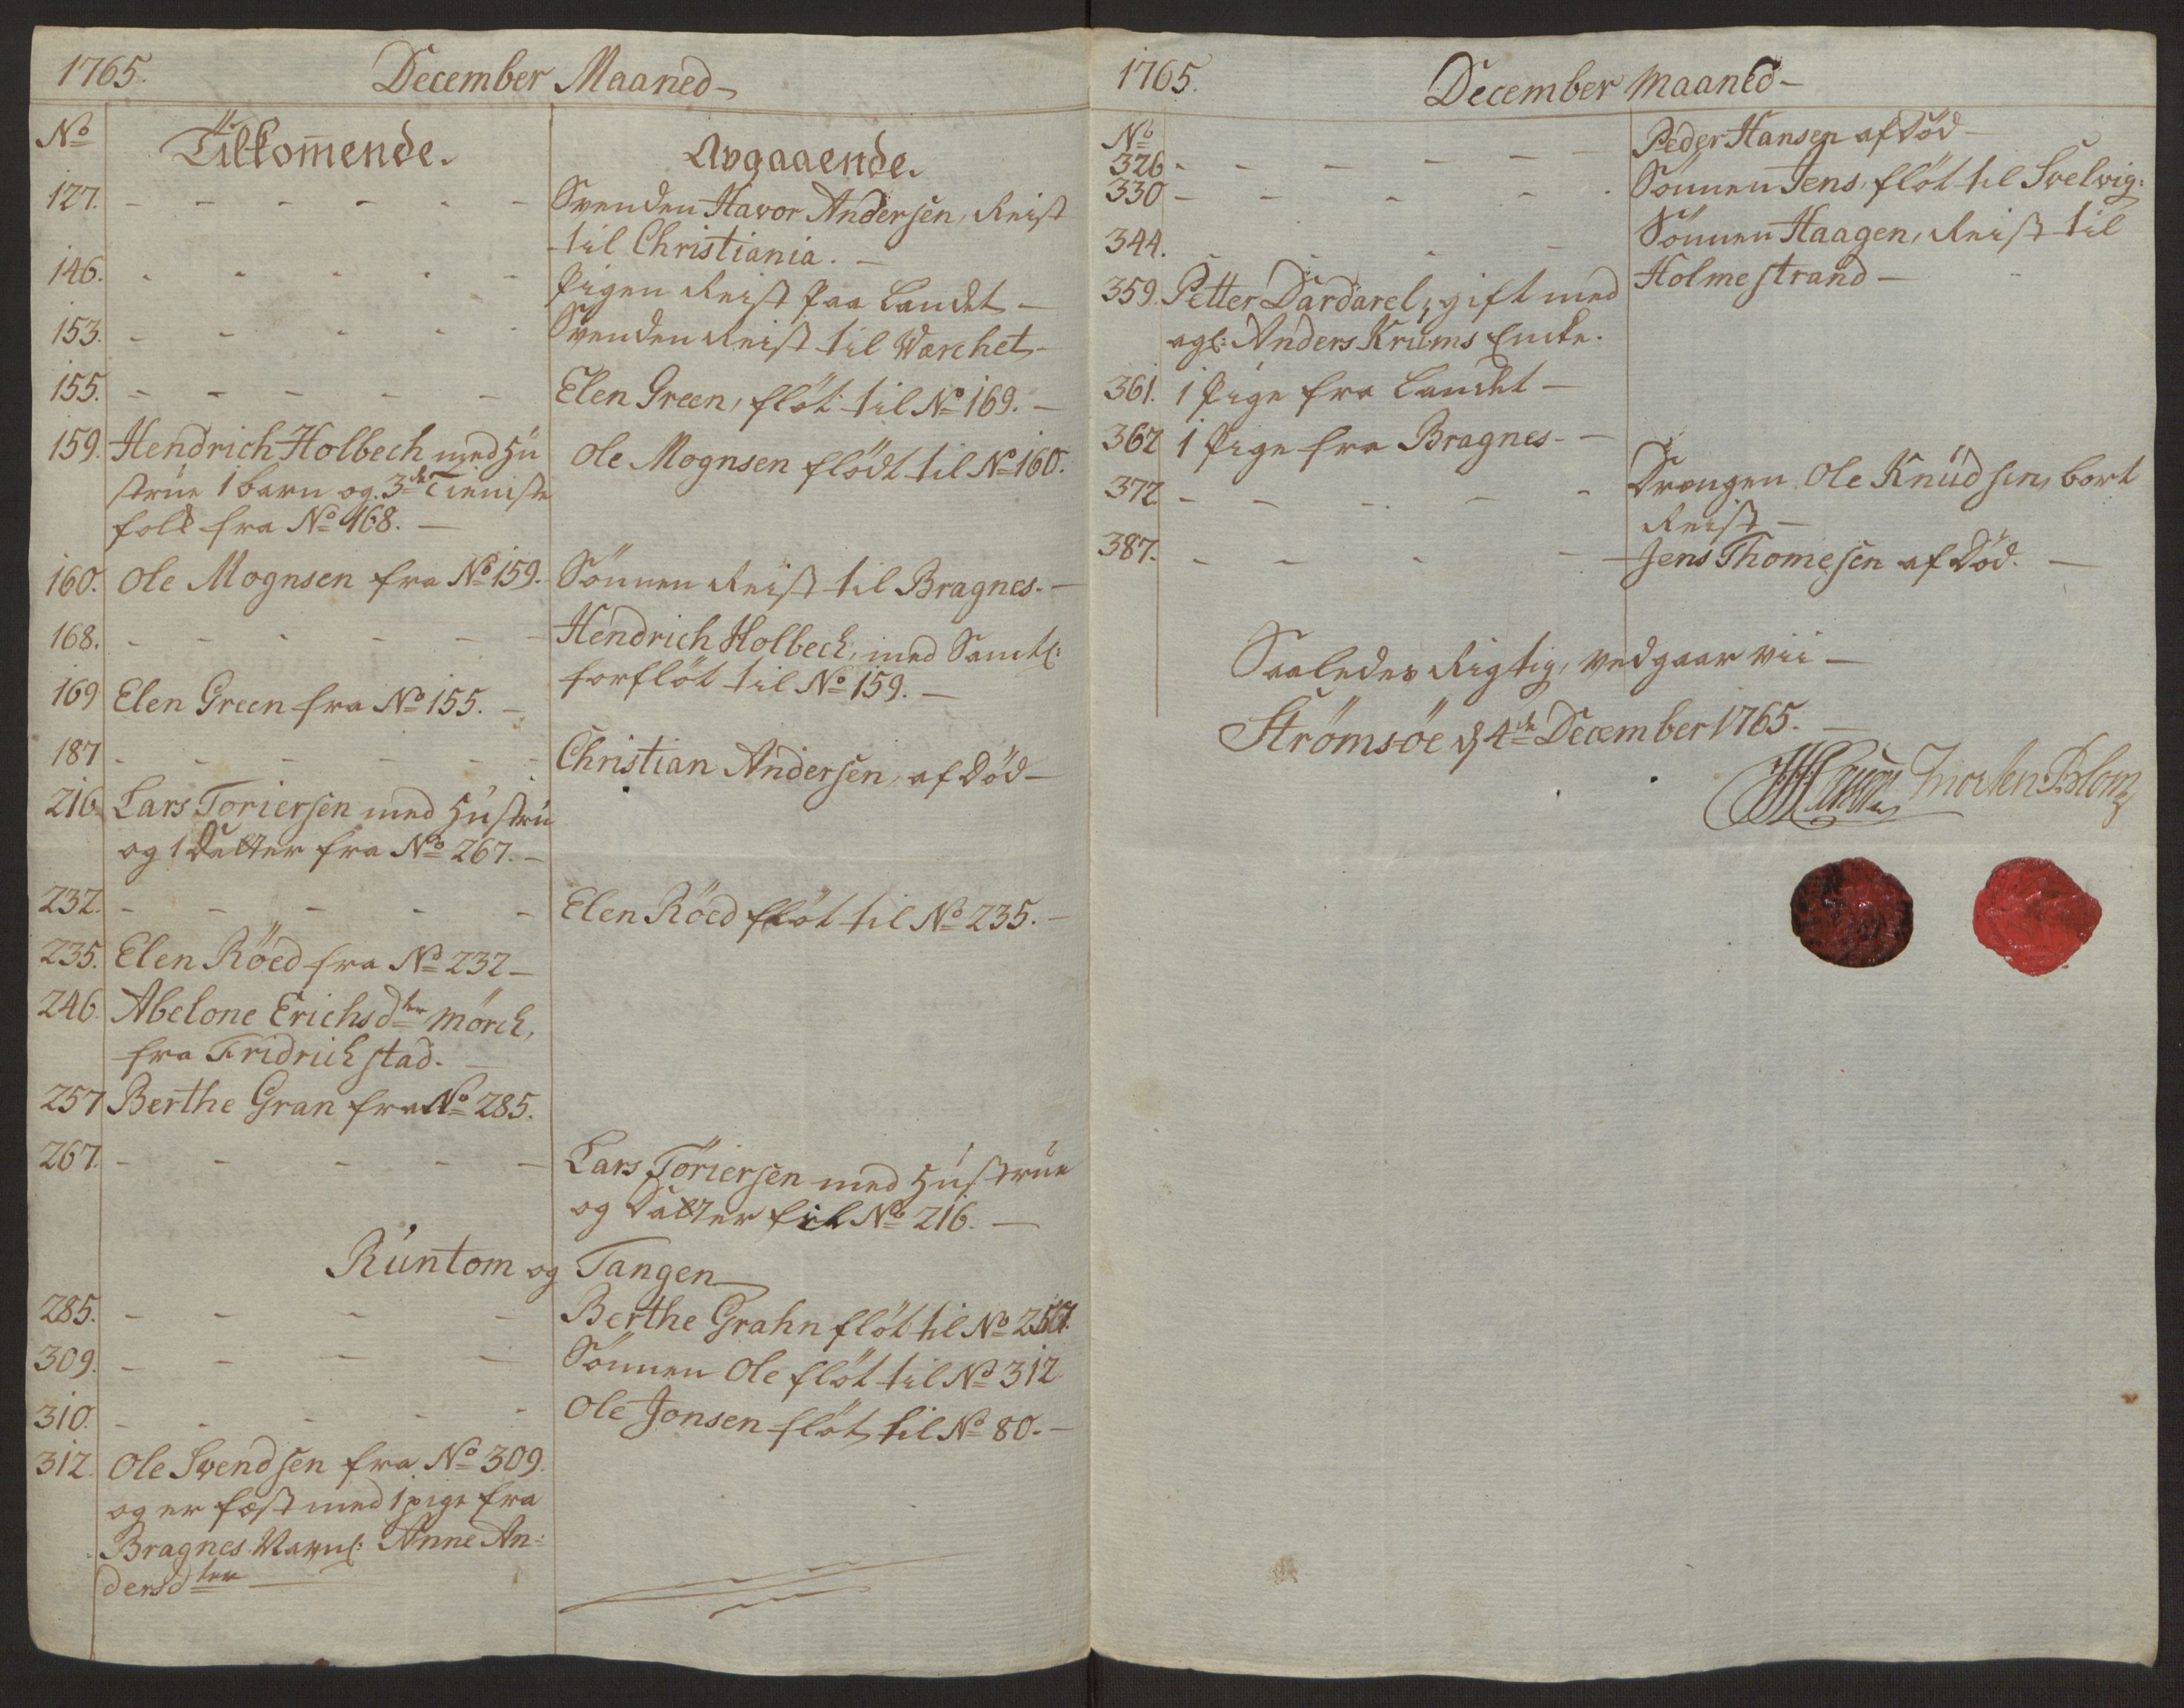 1765. December Maaned
No Tilkom̅ende. Avgaaende.
127. - - - - - - Svenden Havor Andersen, Reist
til Christiania. -
146. - - - - - Pigen Reist paa Landet -
153. - - - - - Svenden Reist til Værchet -
155. - - - - - Elen Green, flöt til No 169. -
159. Hendrich Holbech med Hu Ole Mognsen flödt til No 160.
strue 1 barn og 3de Tieniste
folk fra No 168. -
160. Ole Mognsen fra No 159. Sönnen Reist til Bragnes. -
168. - - - - - - Hendrich Holbech, med Samtl:
forflöt til No 159. -
169 Elen Green fra No 155. -
187 - - - - - - Christian Andersen, af Död -
216 Lars Toriersen med Hustru
og 1 Datter fra No 267. -
232. - - - - - Elen Röed flöt til No 235. -
235. Elen Röed fra No 232 -
246. Abelone Erichsdter Mörch,
fra Fridrichstad. -
257 Berthe Gran fra No 285.
267. - - - - - Lars Töriersen med Hustrue
og Datter til No 216. -
Runtom og Tangen
285. - - - - Berthe Grahn flöt til No 257.
309. - - - - Sönnen Ole flöt til No 312
310. - - - - - Ole Jonsen flöt til No 80. -
312. Ole Svendsen fra No 309.
og er fæst med 1 pige fra
Bragnes Navnl: Anne An:
dersdter -
1765. December Maaned -
No Peder Hansen af Död -
326 - - - - - -
330 - - - - - Sönnen Jens, flöt til Svelvig:
344. - - - - Sönnen Haagen, Reist til
Holmestrand -
359. Petter Dardarel, gift med
agl: Anders Krums Encke.
361. 1 Pige fra Landet -
362 1 Pige fra Bragnes. -
372 - - - - - Drengen Ole Knudsen, bort
Reist -
387. - - - - Jens Thomesen af Död. -
Saaledes Rigtig, vedgaar vii -
Strömsöe d 4de December 1765. -
Morten Blom